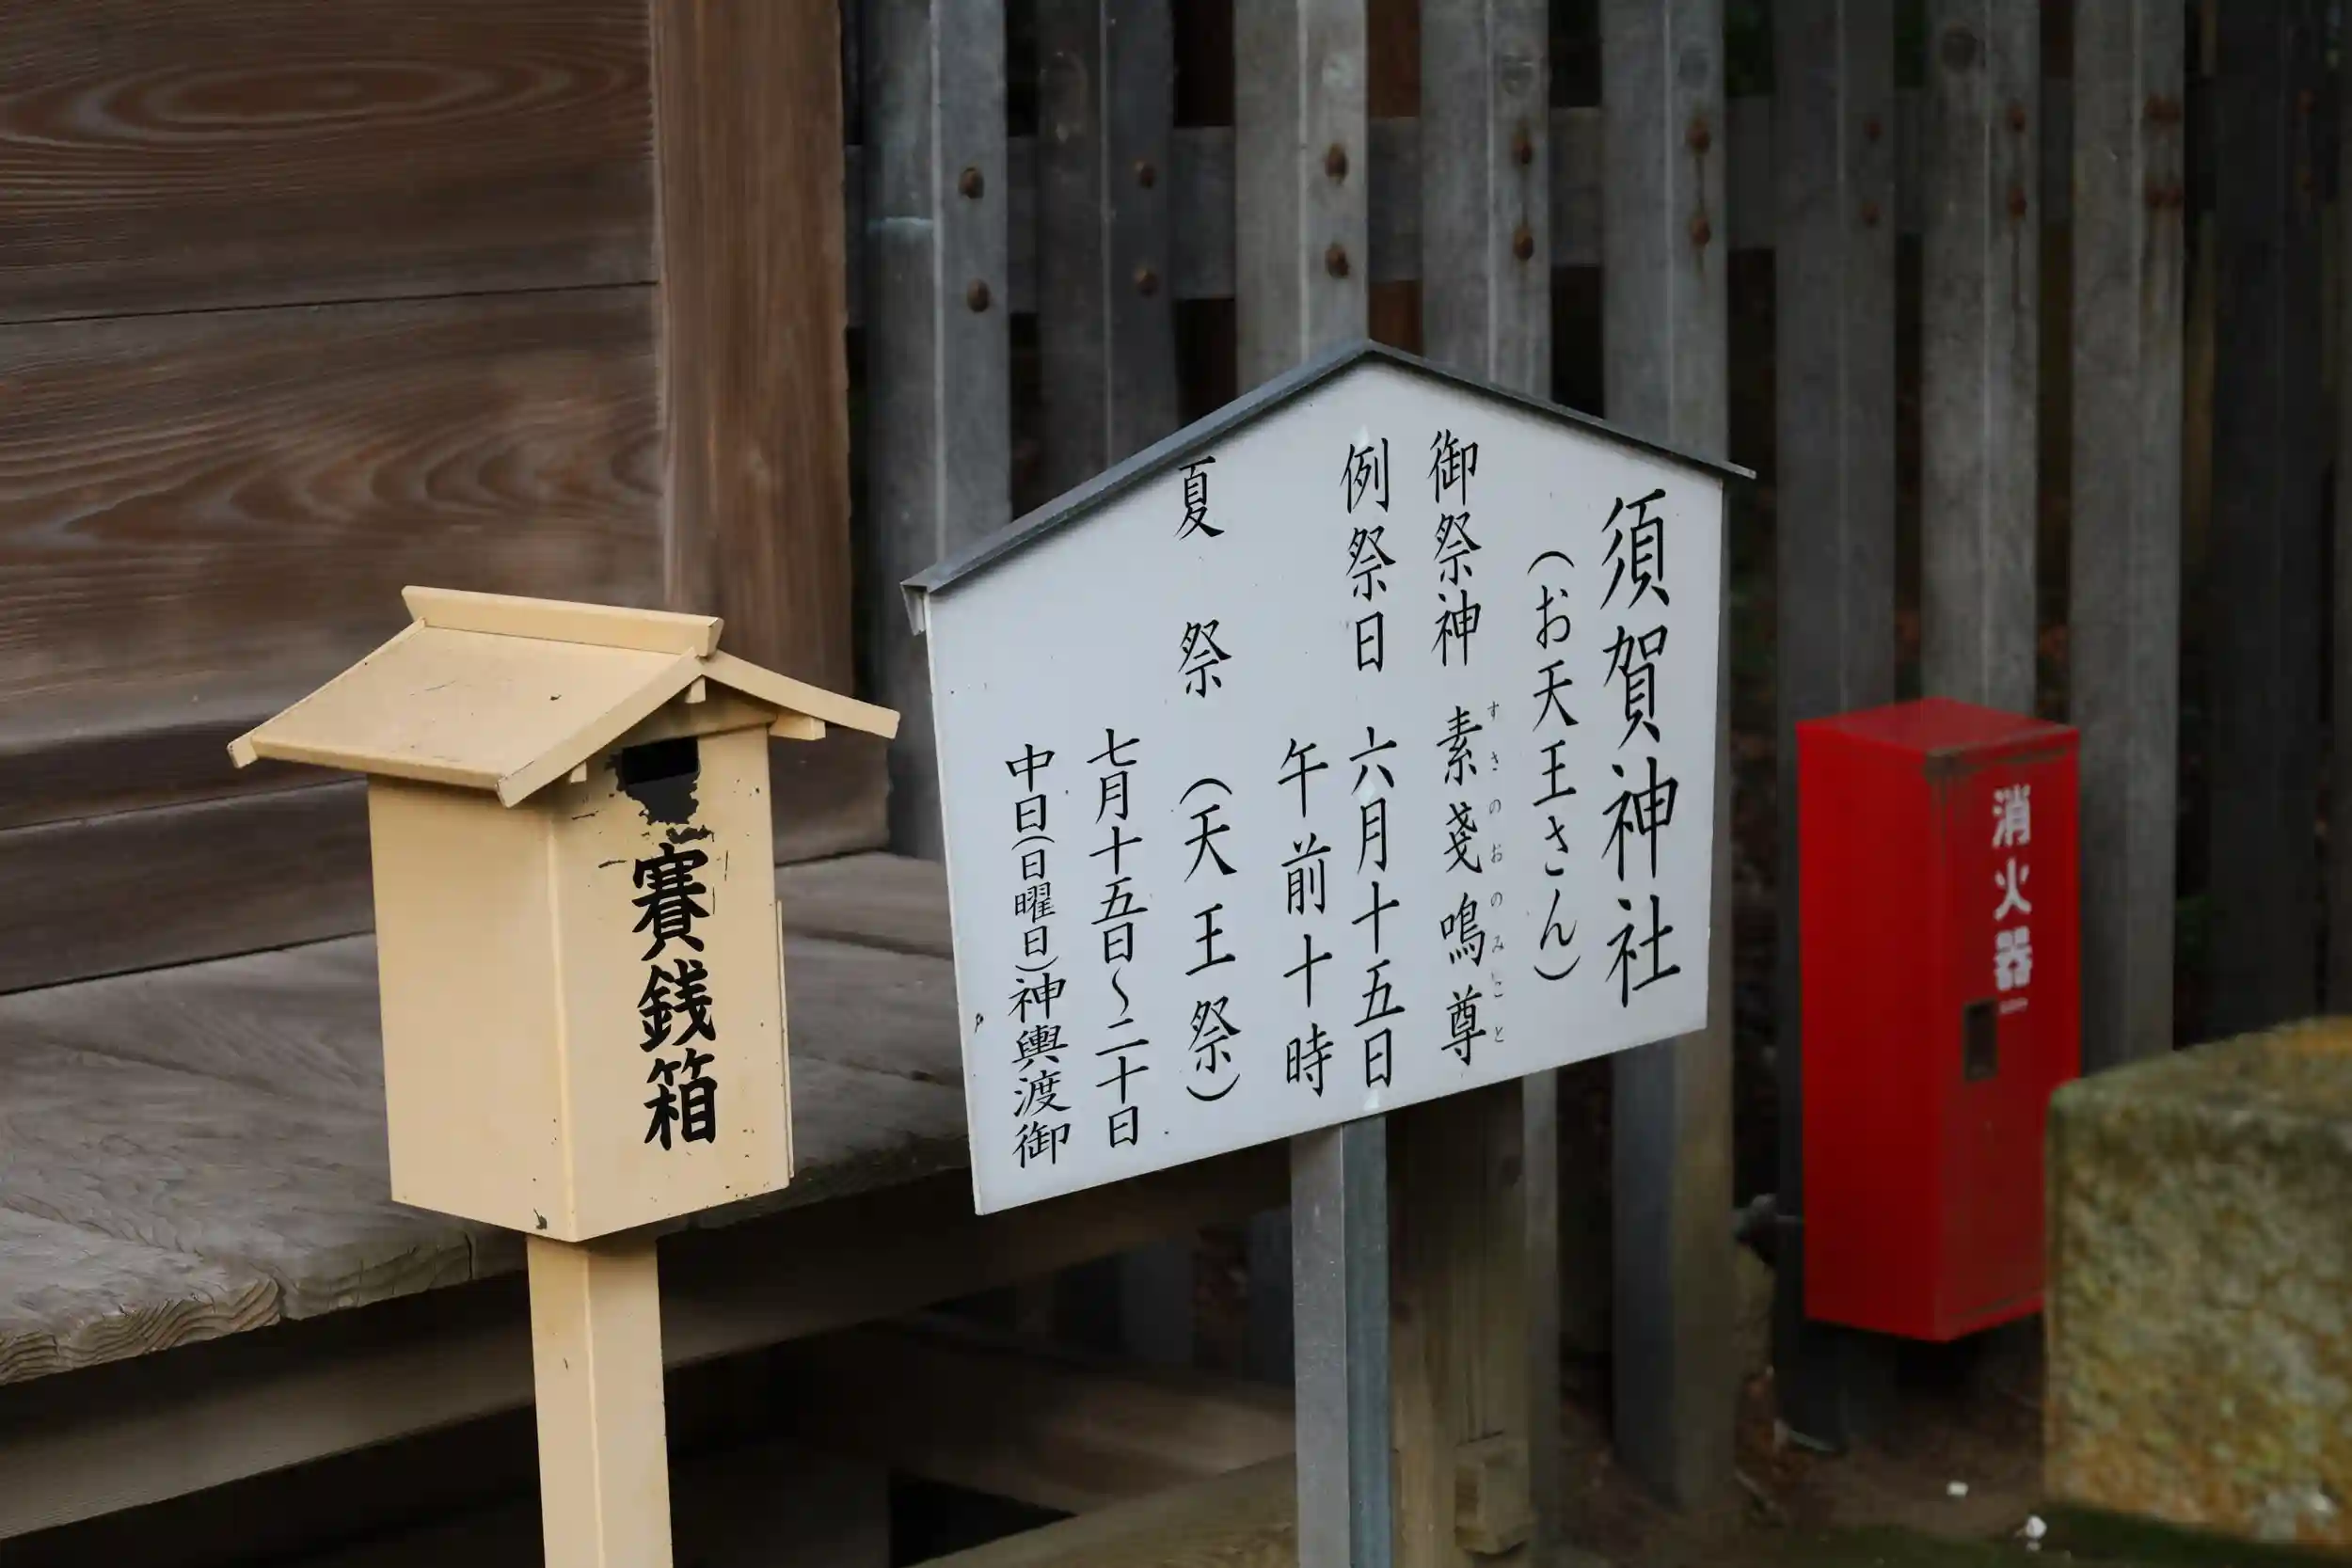 須賀神社
(お天王さん)
御祭神 素戔鳴尊
すさのおのみこと
例祭日 六月十五日
午前十時
夏祭 (天王祭)
七月十五日~二十日
中日(日曜日)神輿渡御
賽銭箱
消火器